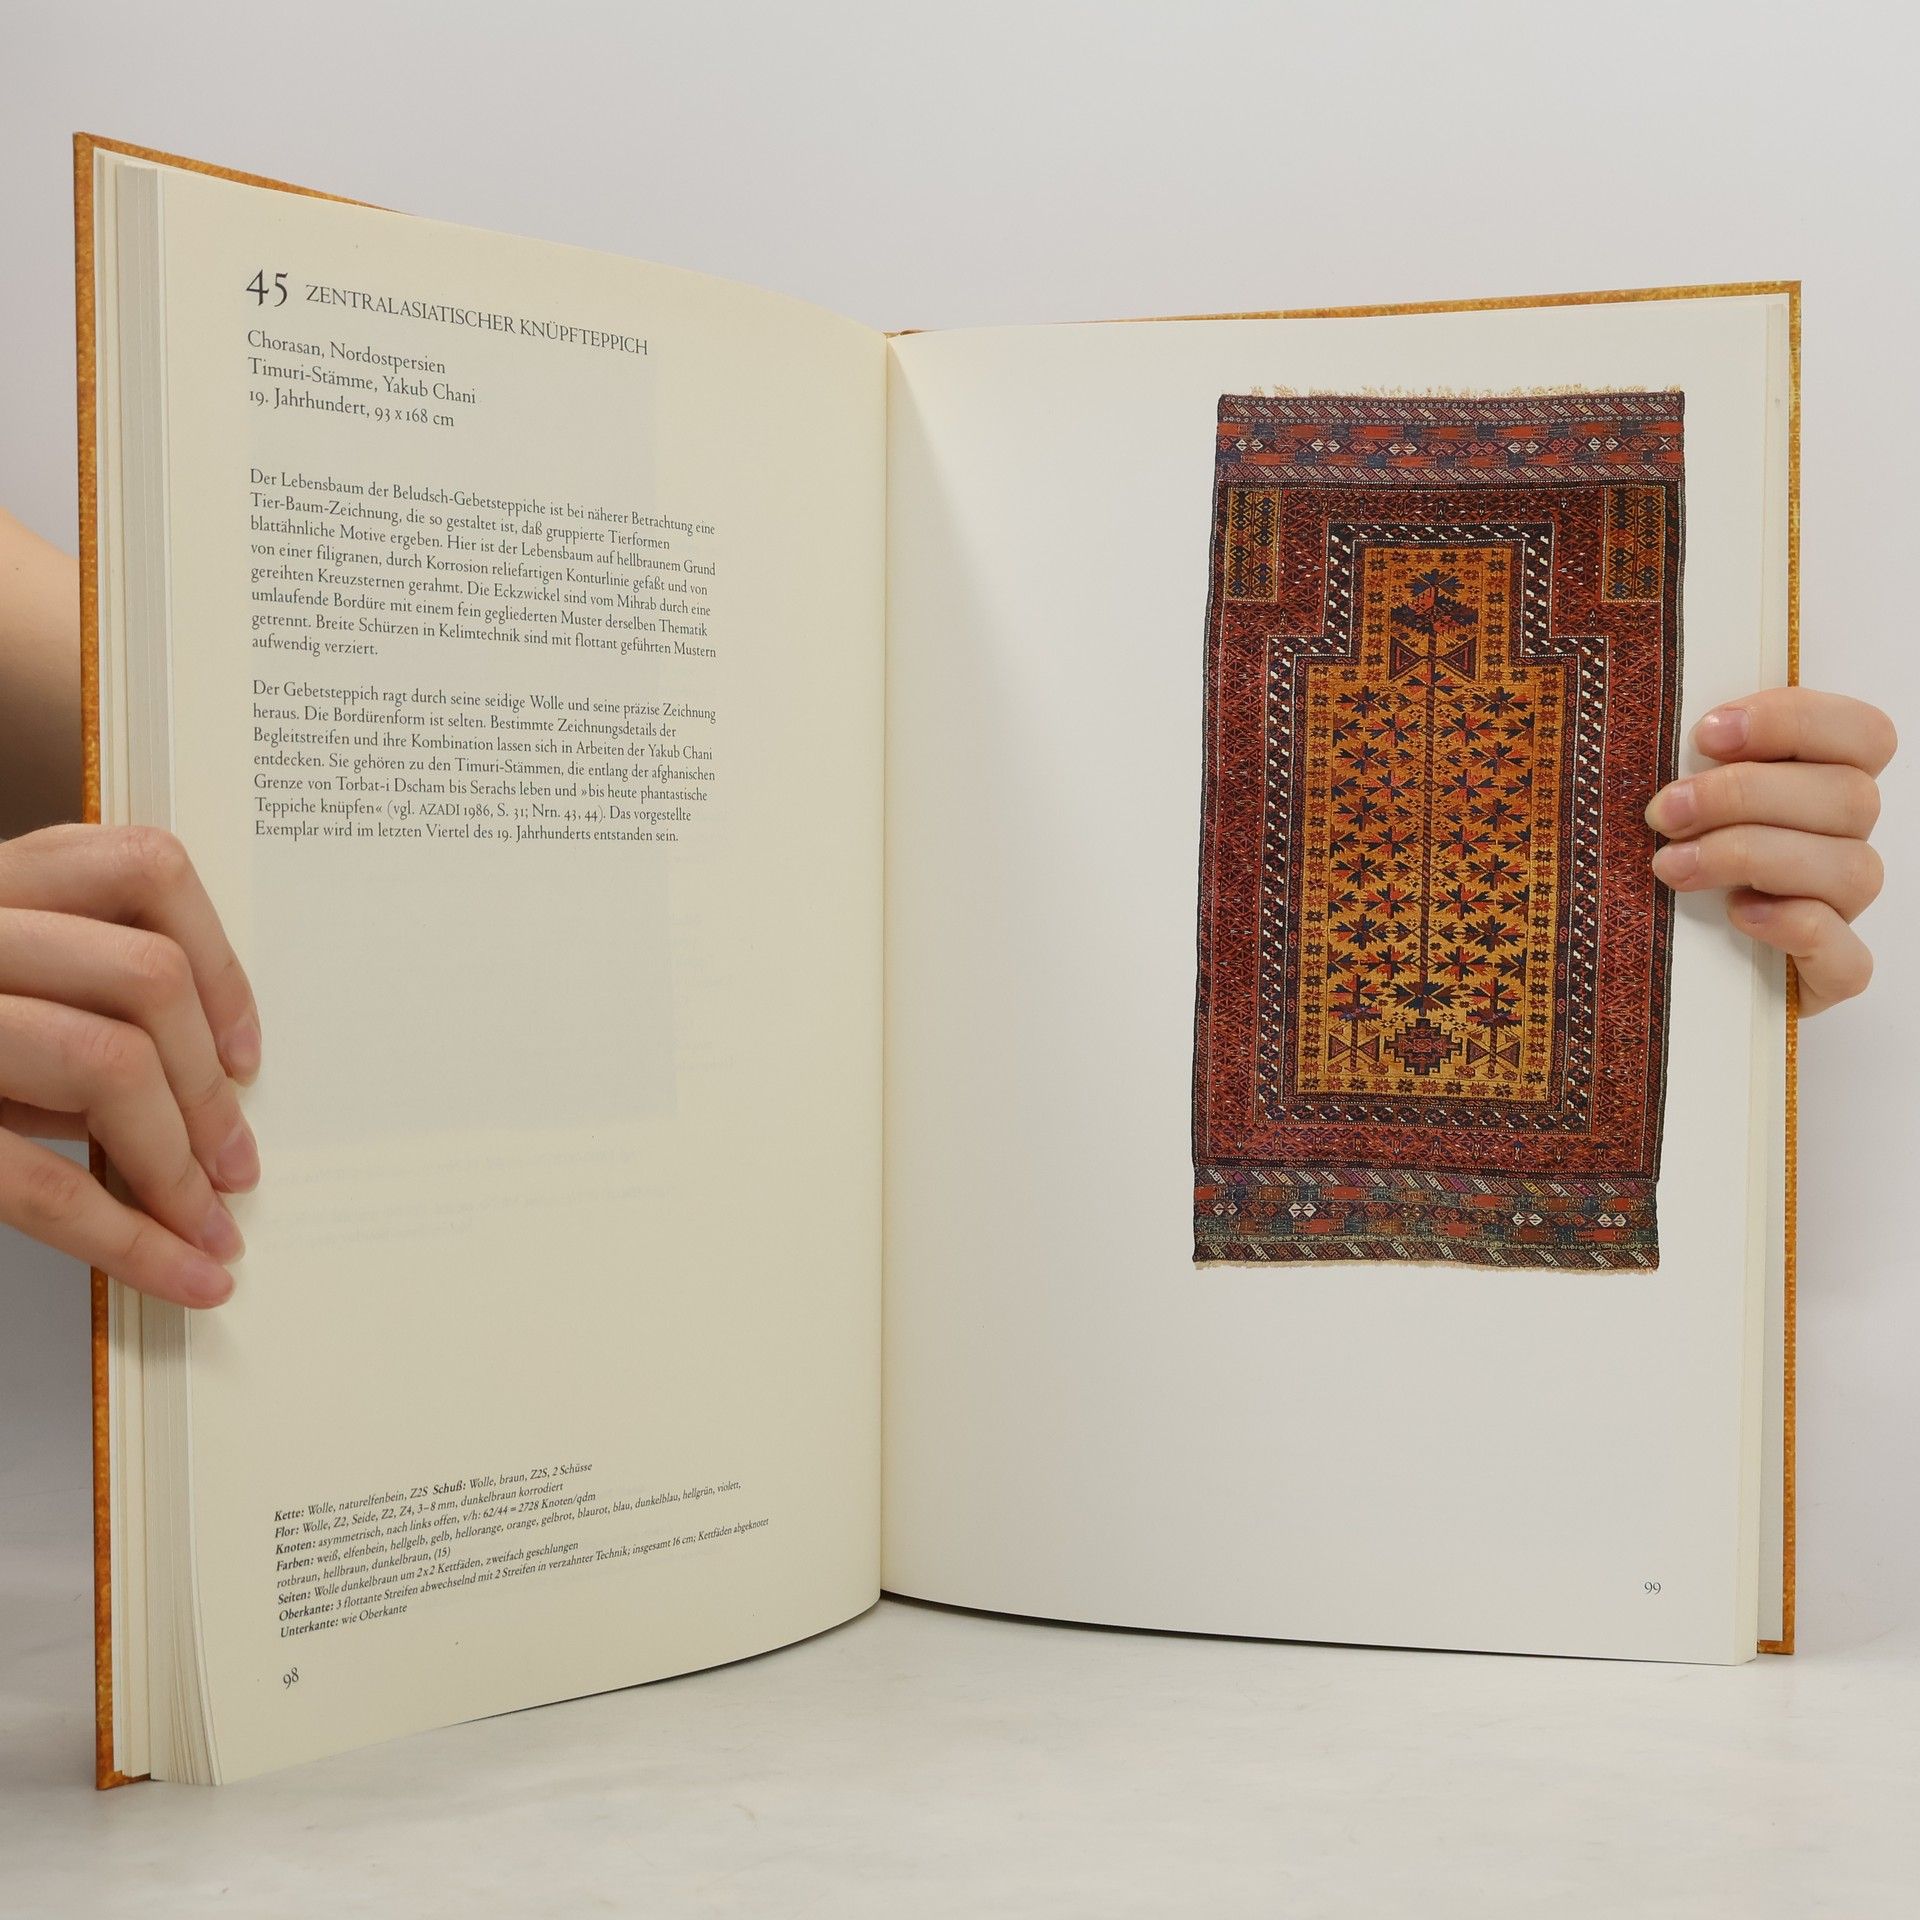 45 ZENTRALASIATISCHER KNÜPFTEPPICH
Chorasan, Nordostpersien
Timuri-Stämme, Yakub Chani
19. Jahrhundert, 93 x 168 cm
Der Lebensbaum der Beludsch-Gebetsteppiche ist bei näherer Betrachtung eine
Tier-Baum-Zeichnung, die so gestaltet ist, daß gruppierte Tierformen
blattähnliche Motive ergeben. Hier ist der Lebensbaum auf hellbraunem Grund
von einer filigranen, durch Korrosion reliefartigen Konturlinie gefaßt und von
gereihten Kreuzsternen gerahmt. Die Eckzwickel sind vom Mihrab durch eine
umlaufende Bordüre mit einem fein gegliederten Muster derselben Thematik
getrennt. Breite Schürzen in Kelimtechnik sind mit flottant geführten Mustern
aufwendig verziert.
Der Gebetsteppich ragt durch seine seidige Wolle und seine präzise Zeichnung
heraus. Die Bordürenform ist selten. Bestimmte Zeichnungsdetails der
Begleitstreifen und ihre Kombination lassen sich in Arbeiten der Yakub Chani
entdecken. Sie gehören zu den Timuri-Stämmen, die entlang der afghanischen
Grenze von Torbat-i Dscham bis Serachs leben und »bis heute phantastische
Teppiche knüpfen« (vgl. AZADI 1986, S. 31; Nrn. 43, 44). Das vorgestellte
Exemplar wird im letzten Viertel des 19. Jahrhunderts entstanden sein.
Kette: Wolle, naturelfenbein, Z2S Schuß: Wolle, braun, Z2S, 2 Schüsse
Flor: Wolle, Z2, Seide, Z2, Z4, 3–8 mm, dunkelbraun korrodiert
Knoten: asymmetrisch, nach links offen, v/h: 62/44 = 2728 Knoten/qdm
Farben: weiß, elfenbein, hellgelb, gelb, hellorange, orange, gelbrot, blaurot, blau, dunkelblau, hellgrün, violett,
rotbraun, hellbraun, dunkelbraun, (15)
Seiten: Wolle dunkelbraun um 2x2 Kettfäden, zweifach geschlungen
Oberkante: 3 flottante Streifen abwechselnd mit 2 Streifen in verzahnter Technik; insgesamt 16 cm; Kettfäden abgeknotet
Unterkante: wie Oberkante
98
99